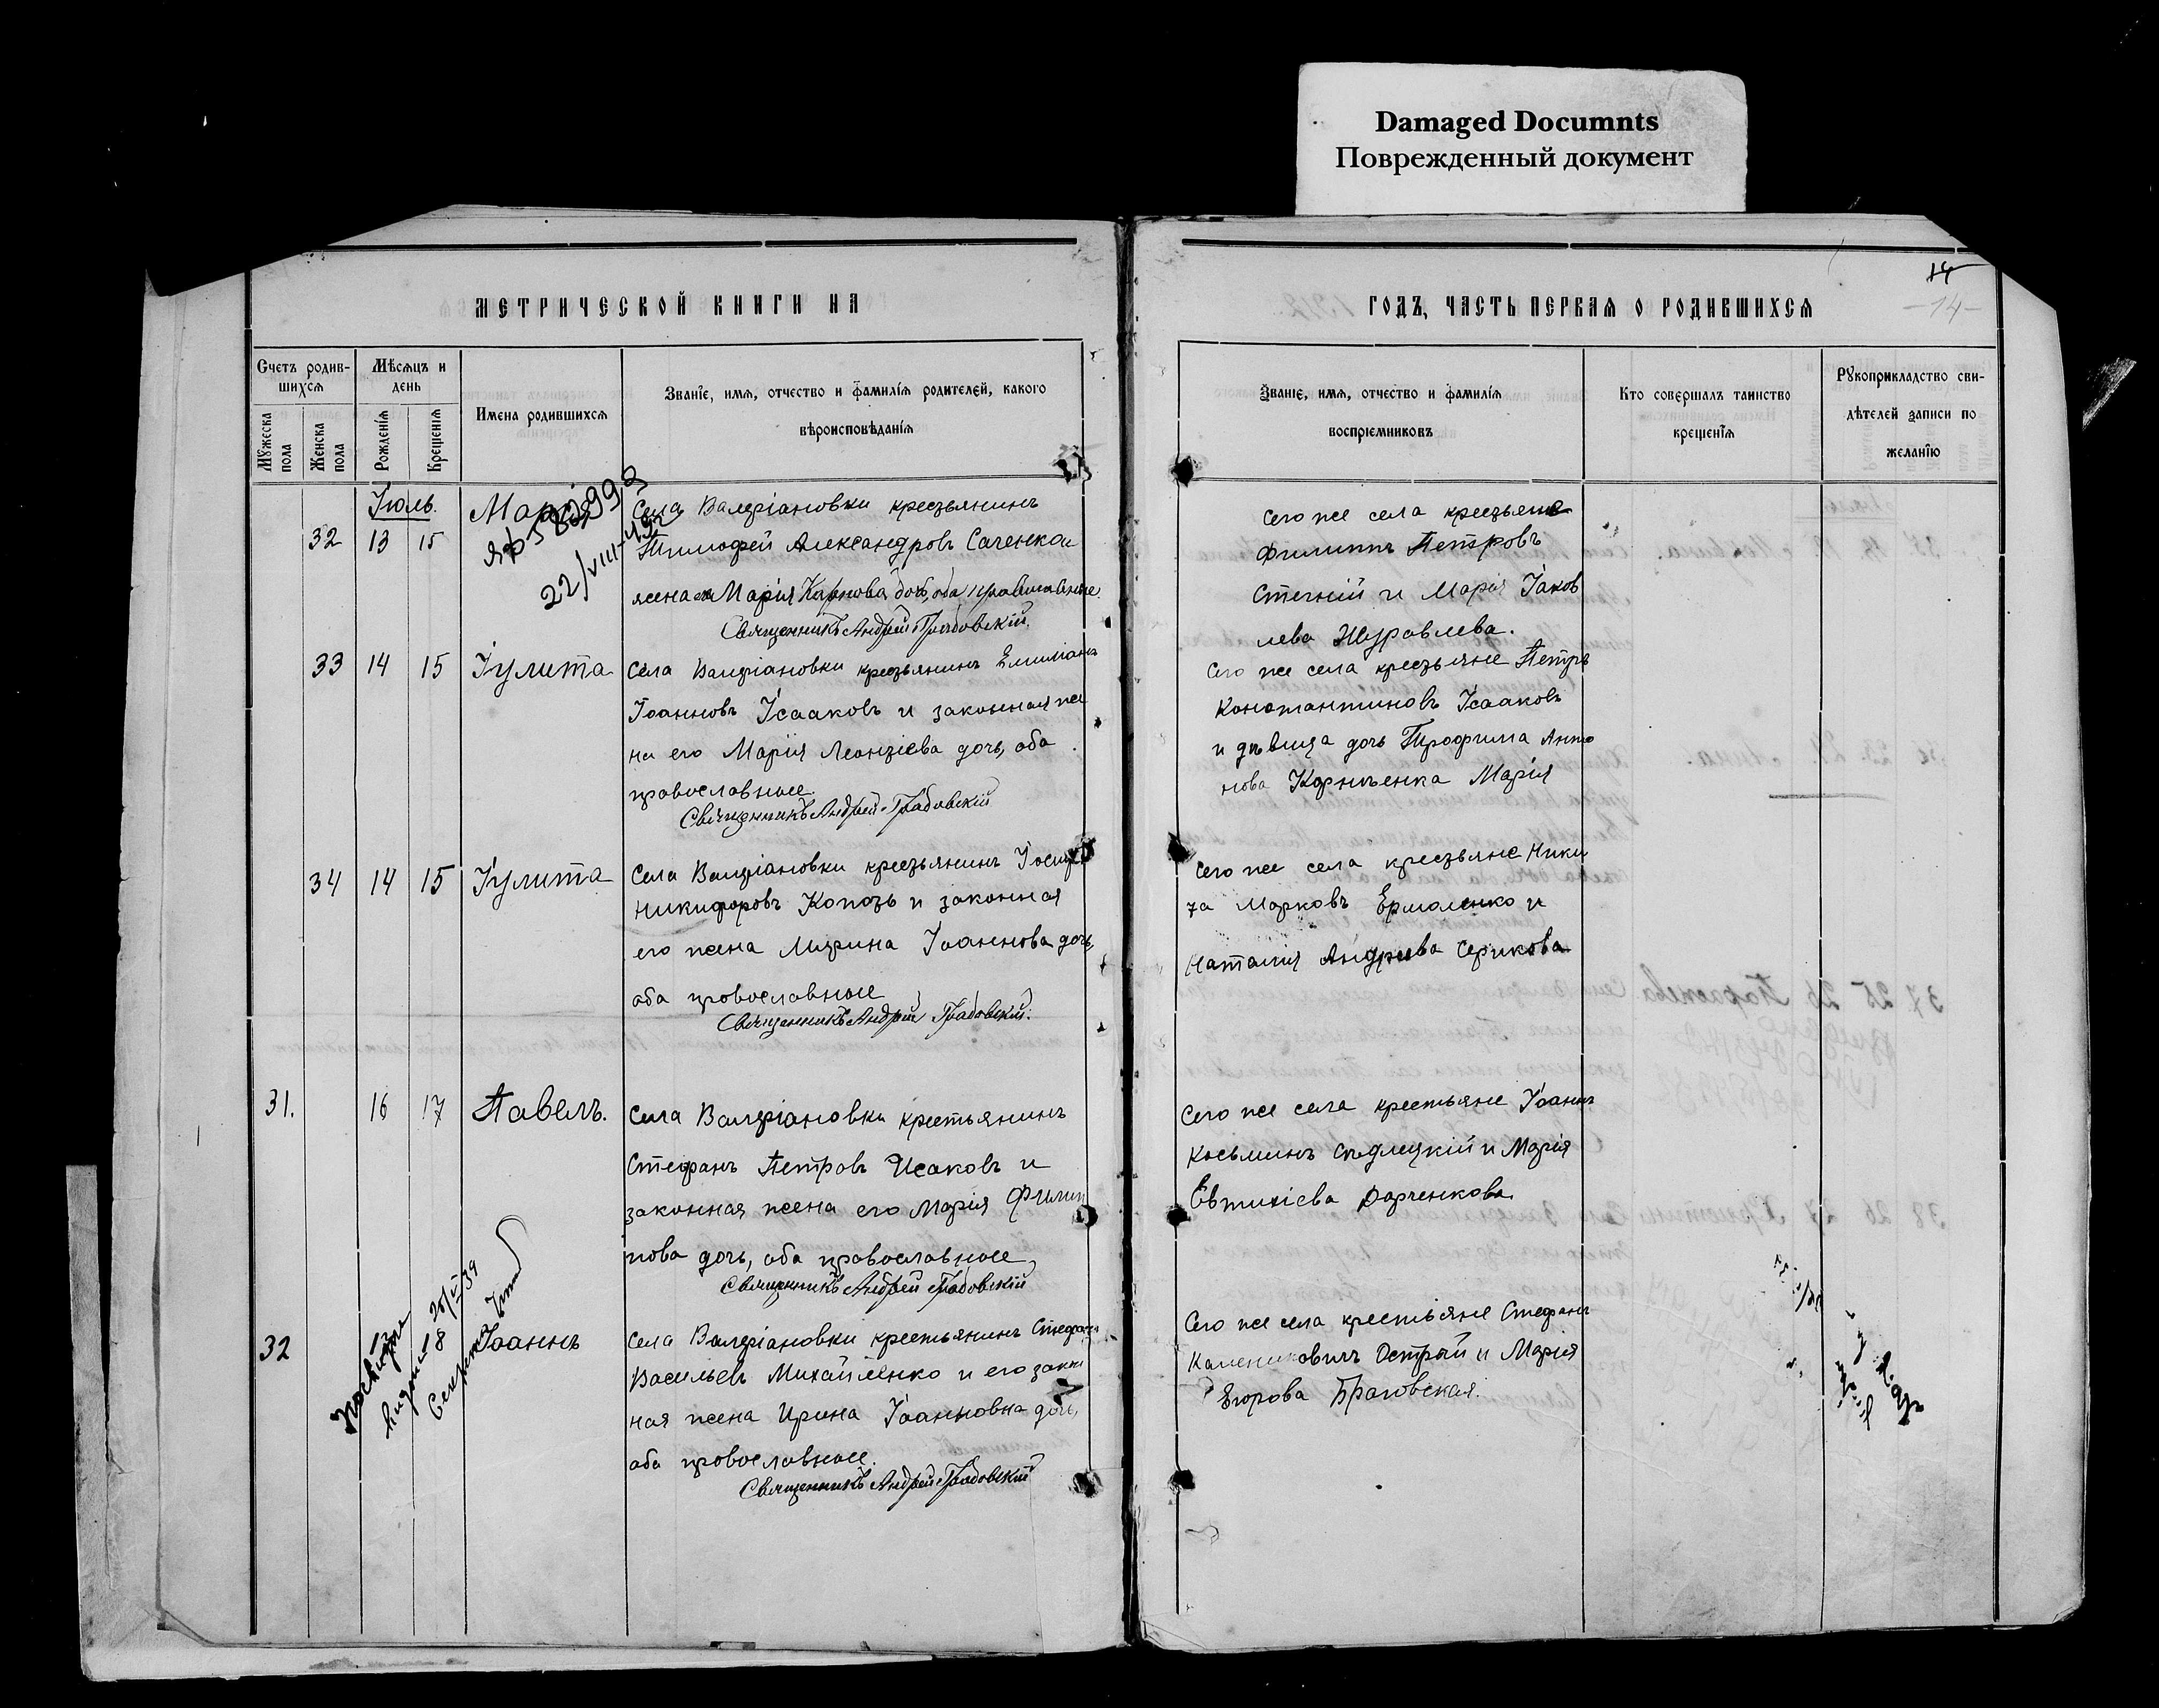 Damaged Documnts
Поврежденный документ
14
-14-
МЕТРИЧЕСКОЙ КНИГИ НА
ГОДЪ, ЧАСТЬ ПЕРВАЯ О РОДИВШИХСЯ
Счетъ родив-
шихся
Мужеска пола
Женска пола
Мѣсяцъ и
день
Рожденія
Крещенія
Имена родившихся
Званіе, имя, отчество и фамилія родителей, какого
вѣроисповѣданія
Званіе, имя, отчество и фамилія
воспріемниковъ
Кто совершалъ таинство
крещенія
Рукоприкладство сви-
дѣтелей записи по
желанію
Іюль.
32 13 15 Марія
22/VIII-
Села Валеріановки крестьянинъ
Тимофей Александровъ Саченко и
жена Марія Карпова дочь, оба православные.
Священникъ Андрей Грабовскій.
Сего же села крестьяне
Филиппъ Петровъ
Стегній и Марія Іаков
лева Журавлева.
33 14 15 Іулита
Села Валеріановки крестьянинъ Емиліанъ
Іоанновъ Ісааковъ и законная же
на его Марія Леонтіева дочь, оба
православные.
Священникъ Андрей Грабовскій
Сего же села крестьяне Петръ
Константиновъ Ісааковъ
и дѣвица дочь Трофима Анто
нова Корнѣенка Марія
34 14 15 Іулита
Села Валеріановки крестьянинъ Іосифъ
Никифоровъ Коподь и законная
его жена Марина Іоаннова дочь,
оба православные
Священникъ Андрей Грабовскій.
Сего же села крестьяне Ники
та Марковъ Ермоленко и
Наталія Андреева Серикова
31. 16 17 Павелъ.
Села Валеріановки крестьянинъ
Стефанъ Петровъ Исаковъ и
законная жена его Марія Филип
пова дочь, оба православные,
Священникъ Андрей Грабовскій
Сего же села крестьяне Іоаннъ
Косьминъ Сѣдлецкій и Марія
Евтихіева Дарченкова
32 Іоаннъ
Села Валеріановки крестьянинъ Стефанъ
Васильевъ Михайленко и его закон
ная жена Ирина Іоанновна дочь,
оба православные.
Священникъ Андрей Грабовскій
Сего же села крестьяне Стефанъ
Острый и Марія
Егорова Браговская.